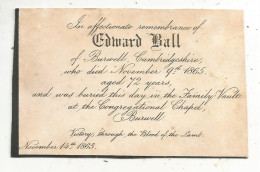 In affectionate remembrance of
Edward Ball
of Burwell, Cambridgeshire,
who died November 9th 1865.
aged 72 years,
and was buried this day in the Family Vault
at the Congregational Chapel,
Burwell
Victory, through the Blood of the Lamb.
November 14th 1865.